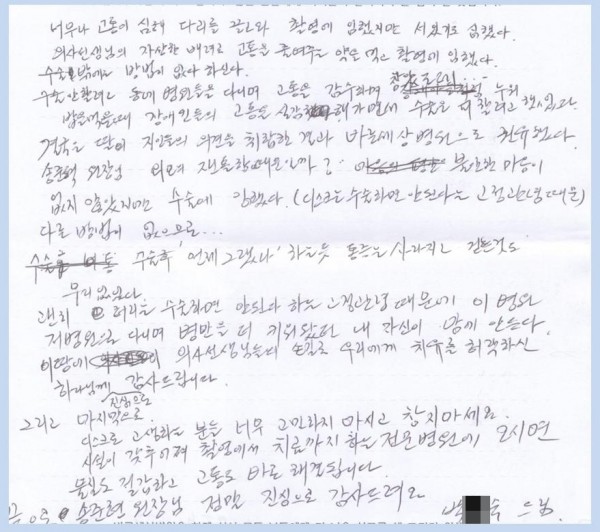 너무나 고통이 심해 다리를 끌고와 촬영에 임했지만 서있기도 힘했다.
의사선생님의 자상한 배려로 고통을 줄여주는 약을 먹고 촬영에 임했다.
수술밖에는 방법이 없다 하신다.
수술안할려고 동네 병원들을 다니며 고통을 감수하며 누워
밥을먹을때 장애인들의 고통을 실감해가면서 수술을 더 할려고 했었다.
결국은 딸이 지인들의 의견을 취합한 결과 바른세상병원으로 전원했다.
송준혁 원장님 의료 때문일까? 불안한 마음이
없지 않았지만 수술에 임했다. (디스크는 수술하면 안된다는 고정관념 때문)
다른 방법이 없으므로...
수술후 '언제 그랬나' 하는듯 통증은 사라지고 걷는것도
무리없었다
괜히 허리를 수술하면 안된다 하는 고정관념 때문에 이 병원
저병원을 다니며 병만을 더 키워왔던 내 자신이 밉게 만든다.
이땅에 의사선생님들의 손길로 우리에게 치유를 허락하신
하나님께 진심으로 감사드립니다.
그리고 마지막으로
디스크로 고생하는 분들 너무 고민하지 마시고 참지마세요.
시설이 갖추어져 촬영에서 치료까지 하는 전문병원에 오시면
물질도 절감하고 고통도 바로 해결됩니다.
송준혁 원장님 정말 진심으로 감사드려요
숙 드림